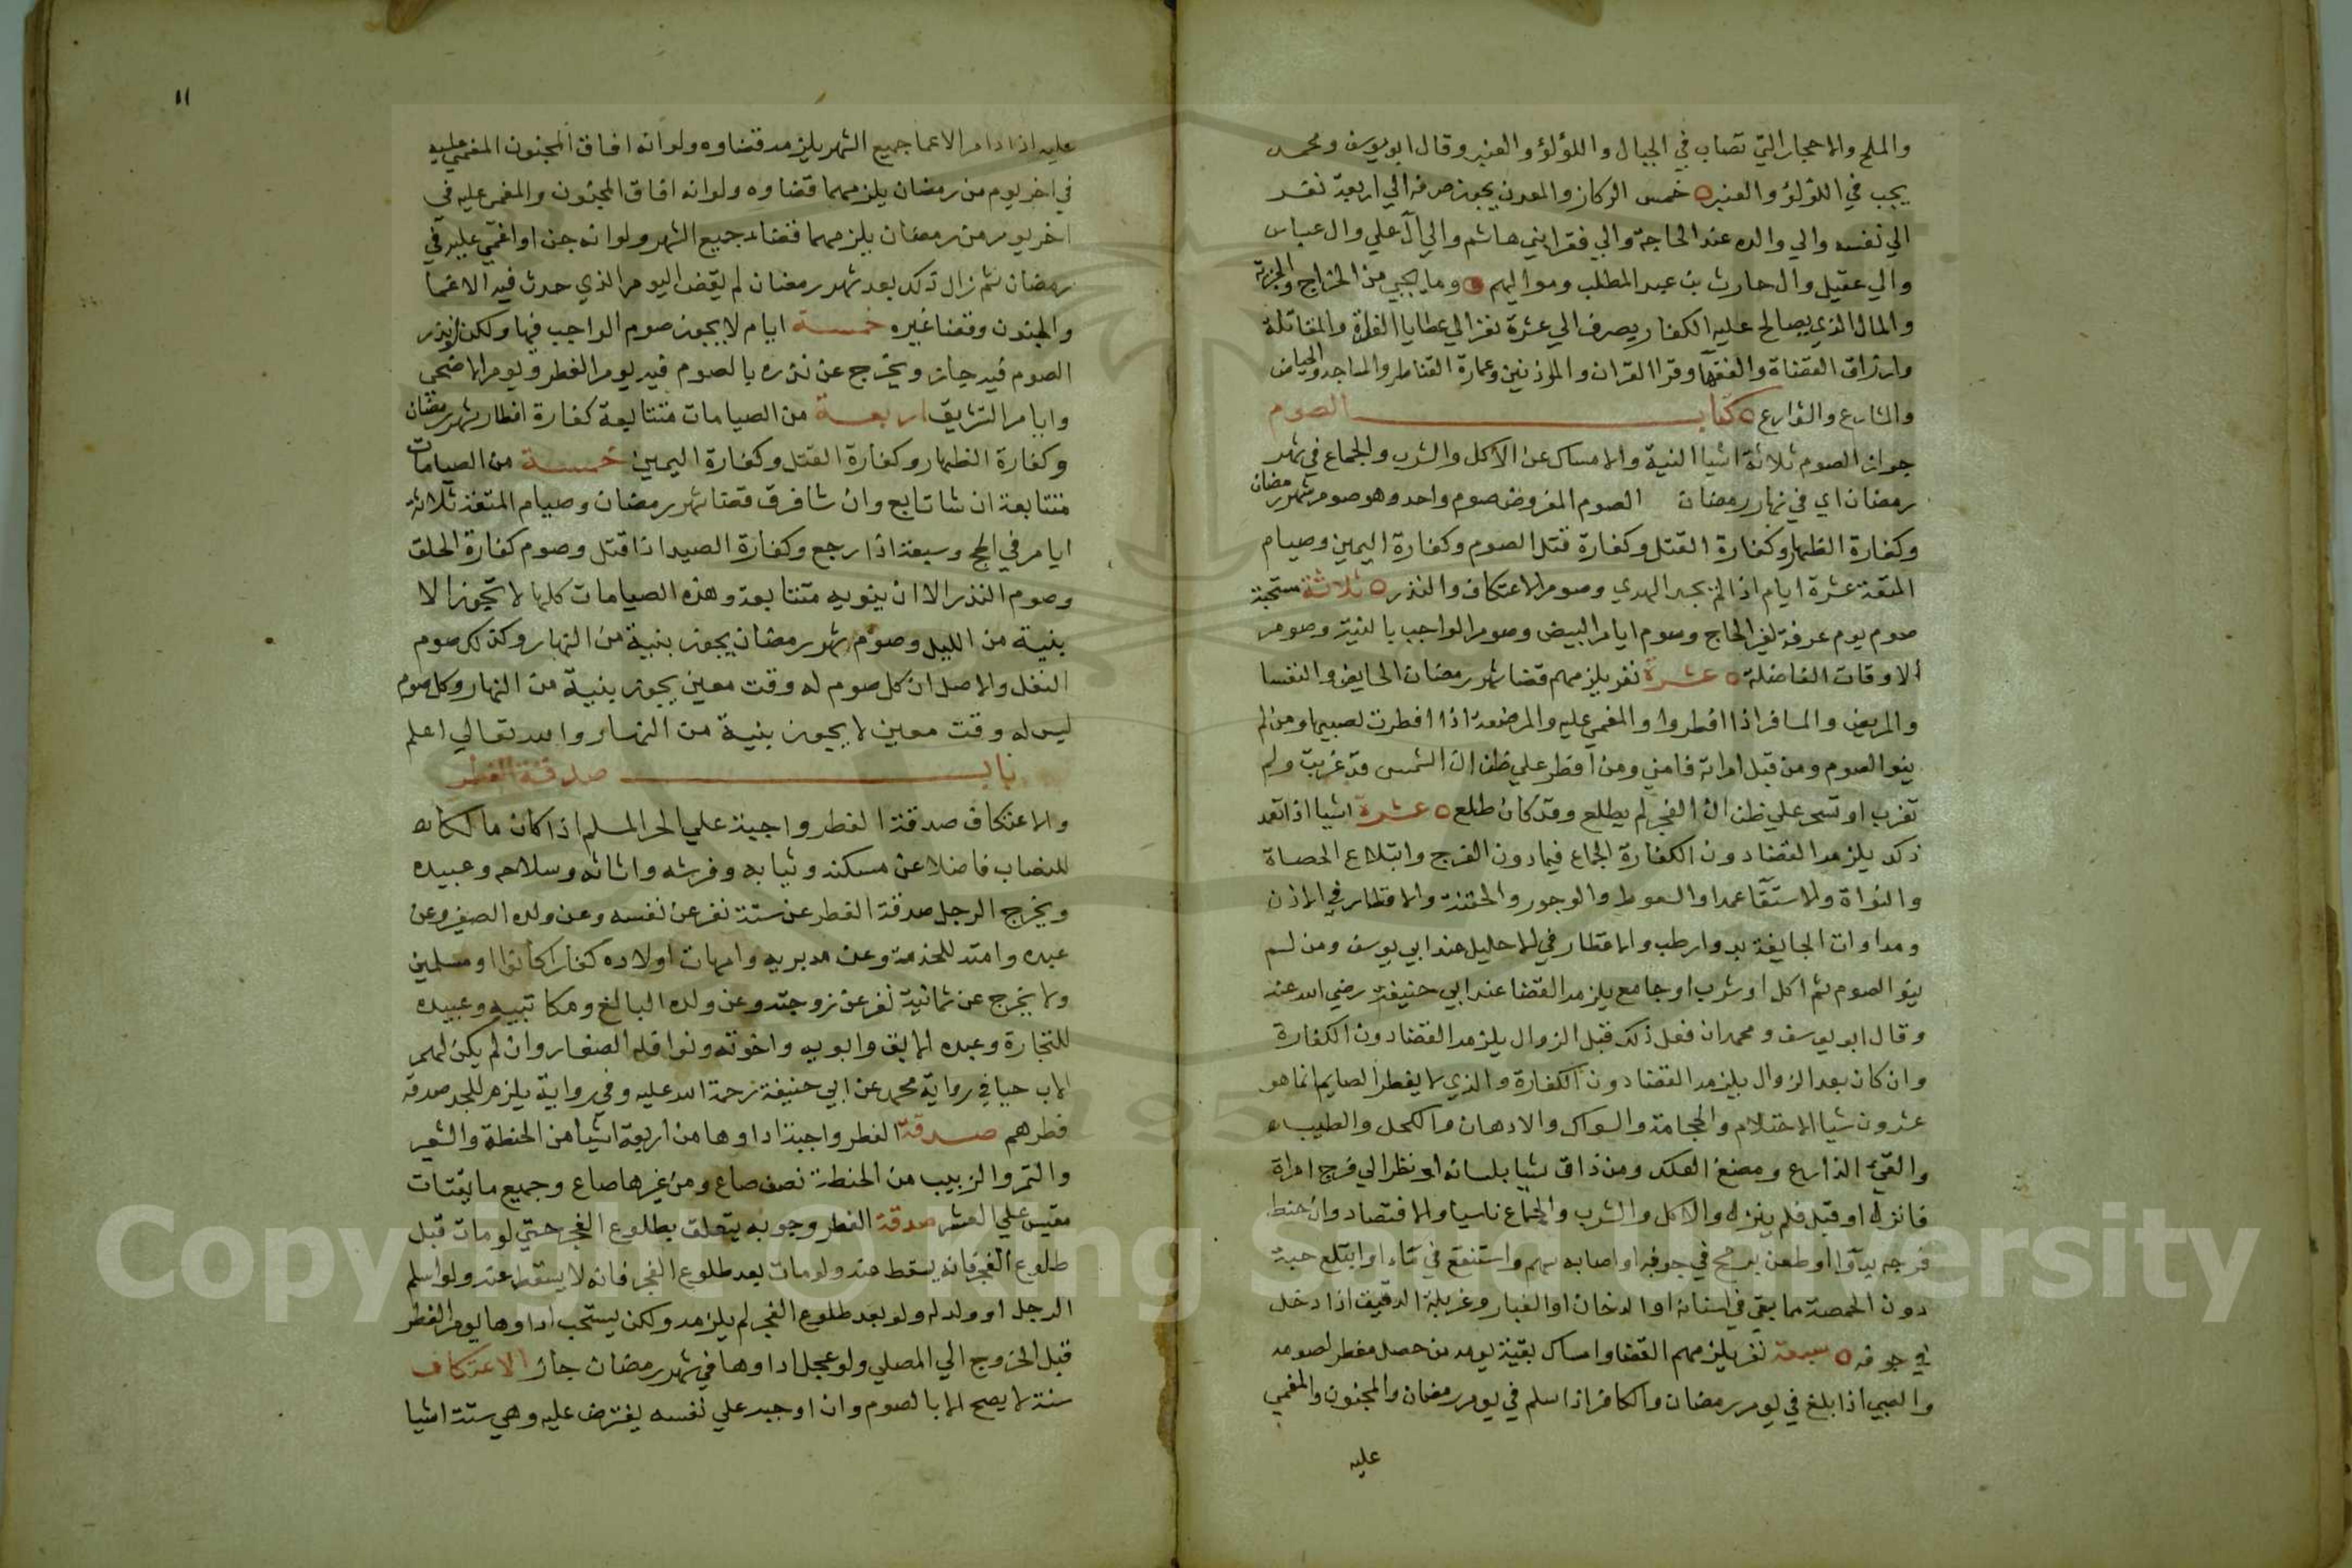 والملح والاحجار التي تصاب في الجبال واللؤلؤ والعنبر وقال ابو يوسف ومحمد
يجب في اللؤلؤ والعنبر ٥ خمس الركاز والمعدن يجوز صرفه الي اربعة نفر
الي نفسه والي والده عند الحاجة والي فقرا بني هاشم والي آل علي وال عباس
والي عقيل وال حارث بن عبد المطلب ومواليهم ٥ وما يجبي من الخراج والجزية
والمال الذي يصالح عليه الكفار يصرف الي عشرة نفر الي عطايا الغزاة والمقاتلة
وارزاق القضاة والفقهآ وقرا القران والموذنين وعمارة القناطر والمساجد والحياض
والشارع والقوارع ٥ كتاب الصوم
جواز الصوم ثلاثة اشيا النية والامساك عن الاكل والشرب والجماع في شهر
رمضان اي في نهار رمضان الصوم المفروض صوم واحد وهو صوم شهر رمضان
وكفارة الظهار وكفارة القتل وكفارة قتل الصوم وكفارة اليمين وصيام
المتعة عشرة ايام اذا لم يجد الهدي وصوم الاعتكاف والنذر ٥ ثلاثة مستحبة
صوم يوم عرفة لغير الحاج وصوم ايام البيض وصوم الواجب بالنية وصوم
الاوقات الفاضلة ٥ عشرة نفر يلزمهم قضا شهر رمضان الحايض والنفسا
والمريض والمسافر اذا افطروا والمغمي عليه والمرضعة اذا افطرت لصبيها ومن لم
ينو الصوم ومن قبل امراته فامني ومن افطر علي ظن ان الشمس قد غربت ولم
تغرب او تسحر علي ظن ان الفجر لم يطلع وقد كان طلع ٥ عشرة اشيا اذا تعمد
ذلك يلزمه القضا دون الكفارة الجماع فيما دون الفرج وابتلاع الحصاة
والنواة والاستقآ عمدا والسعوط والوجور والحقنة والاقطار في الاذن
ومداوات الجايفة بدوا رطب والاقطار في الاحليل عند ابي يوسف ومن لم
ينو الصوم ثم اكل او شرب او جامع يلزمه القضا عند ابي حنيفة رضي الله عنه
وقال ابو يوسف ومحمد ان فعل ذلك قبل الزوال يلزمه القضا دون الكفارة
وان كان بعد الزوال يلزمه القضا دون الكفارة والذي لا يفطر الصايم انما هو
عشرون شيا الاحتلام والحجامة والسواك والادهان والكحل والطيب
والقيء الذارع ومضغ العلك ومن ذاق شيا بلسانه او نظر الي فرج امراة
فانزل او قبل فلم ينزل والاكل والشرب والجماع ناسيا والافتصاد وان
فرجه بدوا او طعن برمح في جوفه او اصابه سهم واستنقع في ماء او ابتلع حبة
دون الحمصة مما بقي في اسنانه او الدخان او الغبار وغربلة الدقيق اذا دخل
في جوفه ٥ سبعة نفر يلزمهم القضا وامساك بقية يومه من حصل مفطر لصومه
والصبي اذا بلغ في يوم رمضان والكافر اذا اسلم في يوم رمضان والمجنون والمغمي
عليه
١١
عليه اذا دام الاغما جميع الشهر يلزمه قضاوه ولو انه افاق المجنون المغمي عليه
في اخر يوم من رمضان يلزمهما قضاوه ولو انه افاق المجنون والمغمي عليه في
اخر يوم من رمضان يلزمهما قضاء جميع الشهر ولو انه جن او اغمي عليه في
رمضان ثم زال ذلك بعد شهر رمضان لم يقض اليوم الذي حدث فيه الاغما
والجنون وقضا غيره خمسة ايام لا يجوز صوم الواجب فيها ولكن لو نذر
الصوم فيه جاز ويخرج عن نذره بالصوم فيه يوم الفطر ويوم الاضحي
وايام التشريق اربعة من الصيامات متتابعة كفارة افطار شهر رمضان
وكفارة الظهار وكفارة القتل وكفارة اليمين خمسة من الصيامات
متتابعة ان شا تابع وان شا فرق قضا شهر رمضان وصيام المتعة ثلاثة
ايام في الحج وسبعة اذا رجع وكفارة الصيد اذا قتل وصوم كفارة الحلق
وصوم النذر الا ان ينويه متتابعة وهذه الصيامات كلها لا تجوز الا
بنية من الليل وصوم شهر رمضان يجوز بنية من النهار وكذلك صوم
النفل والاصل ان كل صوم له وقت معين يجوز بنية من النهار وكل صوم
ليس له وقت معين لا يجوز بنية من النهار والله تعالي اعلم
باب صدقة الفطر
والاعتكاف صدقة الفطر واجبة علي الحر المسلم اذا كان مالكا
للنصاب فاضلا عن مسكنه وثيابه وفرشه واثاثه وسلاحه وعبيده
ويخرج الرجل صدقة الفطر عن ستة نفر عن نفسه وعن ولده الصغير وعن
عبده وامته للخدمة وعن مدبريه وامهات اولاده كفارا كانوا او مسلمين
ولا يخرج عن ثمانية نفر عن زوجته وعن ولده البالغ ومكاتبيه وعبيده
للتجارة وعبده الابق وابويه واخوته ونوافله الصغار وان لم يكن لهم
الاب حيا في رواية محمد عن ابي حنيفة رحمة الله عليه وفي رواية يلزم للجد صدقة
فطرهم صدقة الفطر واجبة اداوها من اربعة اشيا من الحنطة والشعير
والتمر والزبيب من الحنطة نصف صاع ومن غيرها صاع وجميع ما يقتات
مقيس علي العشر صدقة الفطر وجوبه يتعلق بطلوع الفجر حتي لو مات قبل
طلوع الفجر فانه يسقط عنه ولو مات بعد طلوع الفجر فانه لا يسقط عنه ولو اسلم
الرجل او ولد له ولو بعد طلوع الفجر لم يلزمه ولكن يستحب اداوها يوم الفطر
قبل الخروج الي المصلي ولو عجل اداوها في شهر رمضان جاز الاعتكاف
سنة لا يصح الا بالصوم وان اوجبه علي نفسه يفترض عليه وهي ستة اشيا
Copyright © King Saud University
1957